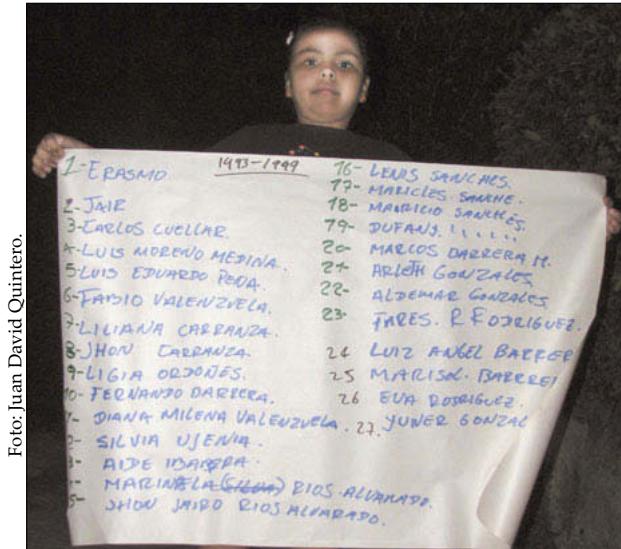 Foto: Juan David Quintero.
1993-1999
1-ERASMO
2-JAIR
3-CARLOS CUELLAR.
4-LUIS MORENO MEDINA.
5-LUIS EDUARDO PEÑA.
6-FABIO VALENZUELA.
7-LILIANA CARRANZA.
8-JHON CARRANZA.
9-LIGIA ORDOÑES.
10-FERNANDO BARRERA.
DIANA MILENA VALENZUELA.
SILVIA UJENIA.
AIDE IBARRA.
MARINELA (SILVIA) RIOS ALVARADO.
JHON JAIRO RIOS ALVARADO.
16- LENIS SANCHES.
17- MARICLES SANCHE.
18- MAURICIO SANCHES.
19- DUFANS. " " "
20- MARCOS BARRERA M.
21- ARLETH GONZALES
22- ALDEMAR GONZALES
23- FARES. R RODRIGUEZ.
24 LUIZ ANGEL BARRER
25 MARISOL. BARREI
26 EVA RODRIGUEZ.
27. YUNER GONZAL